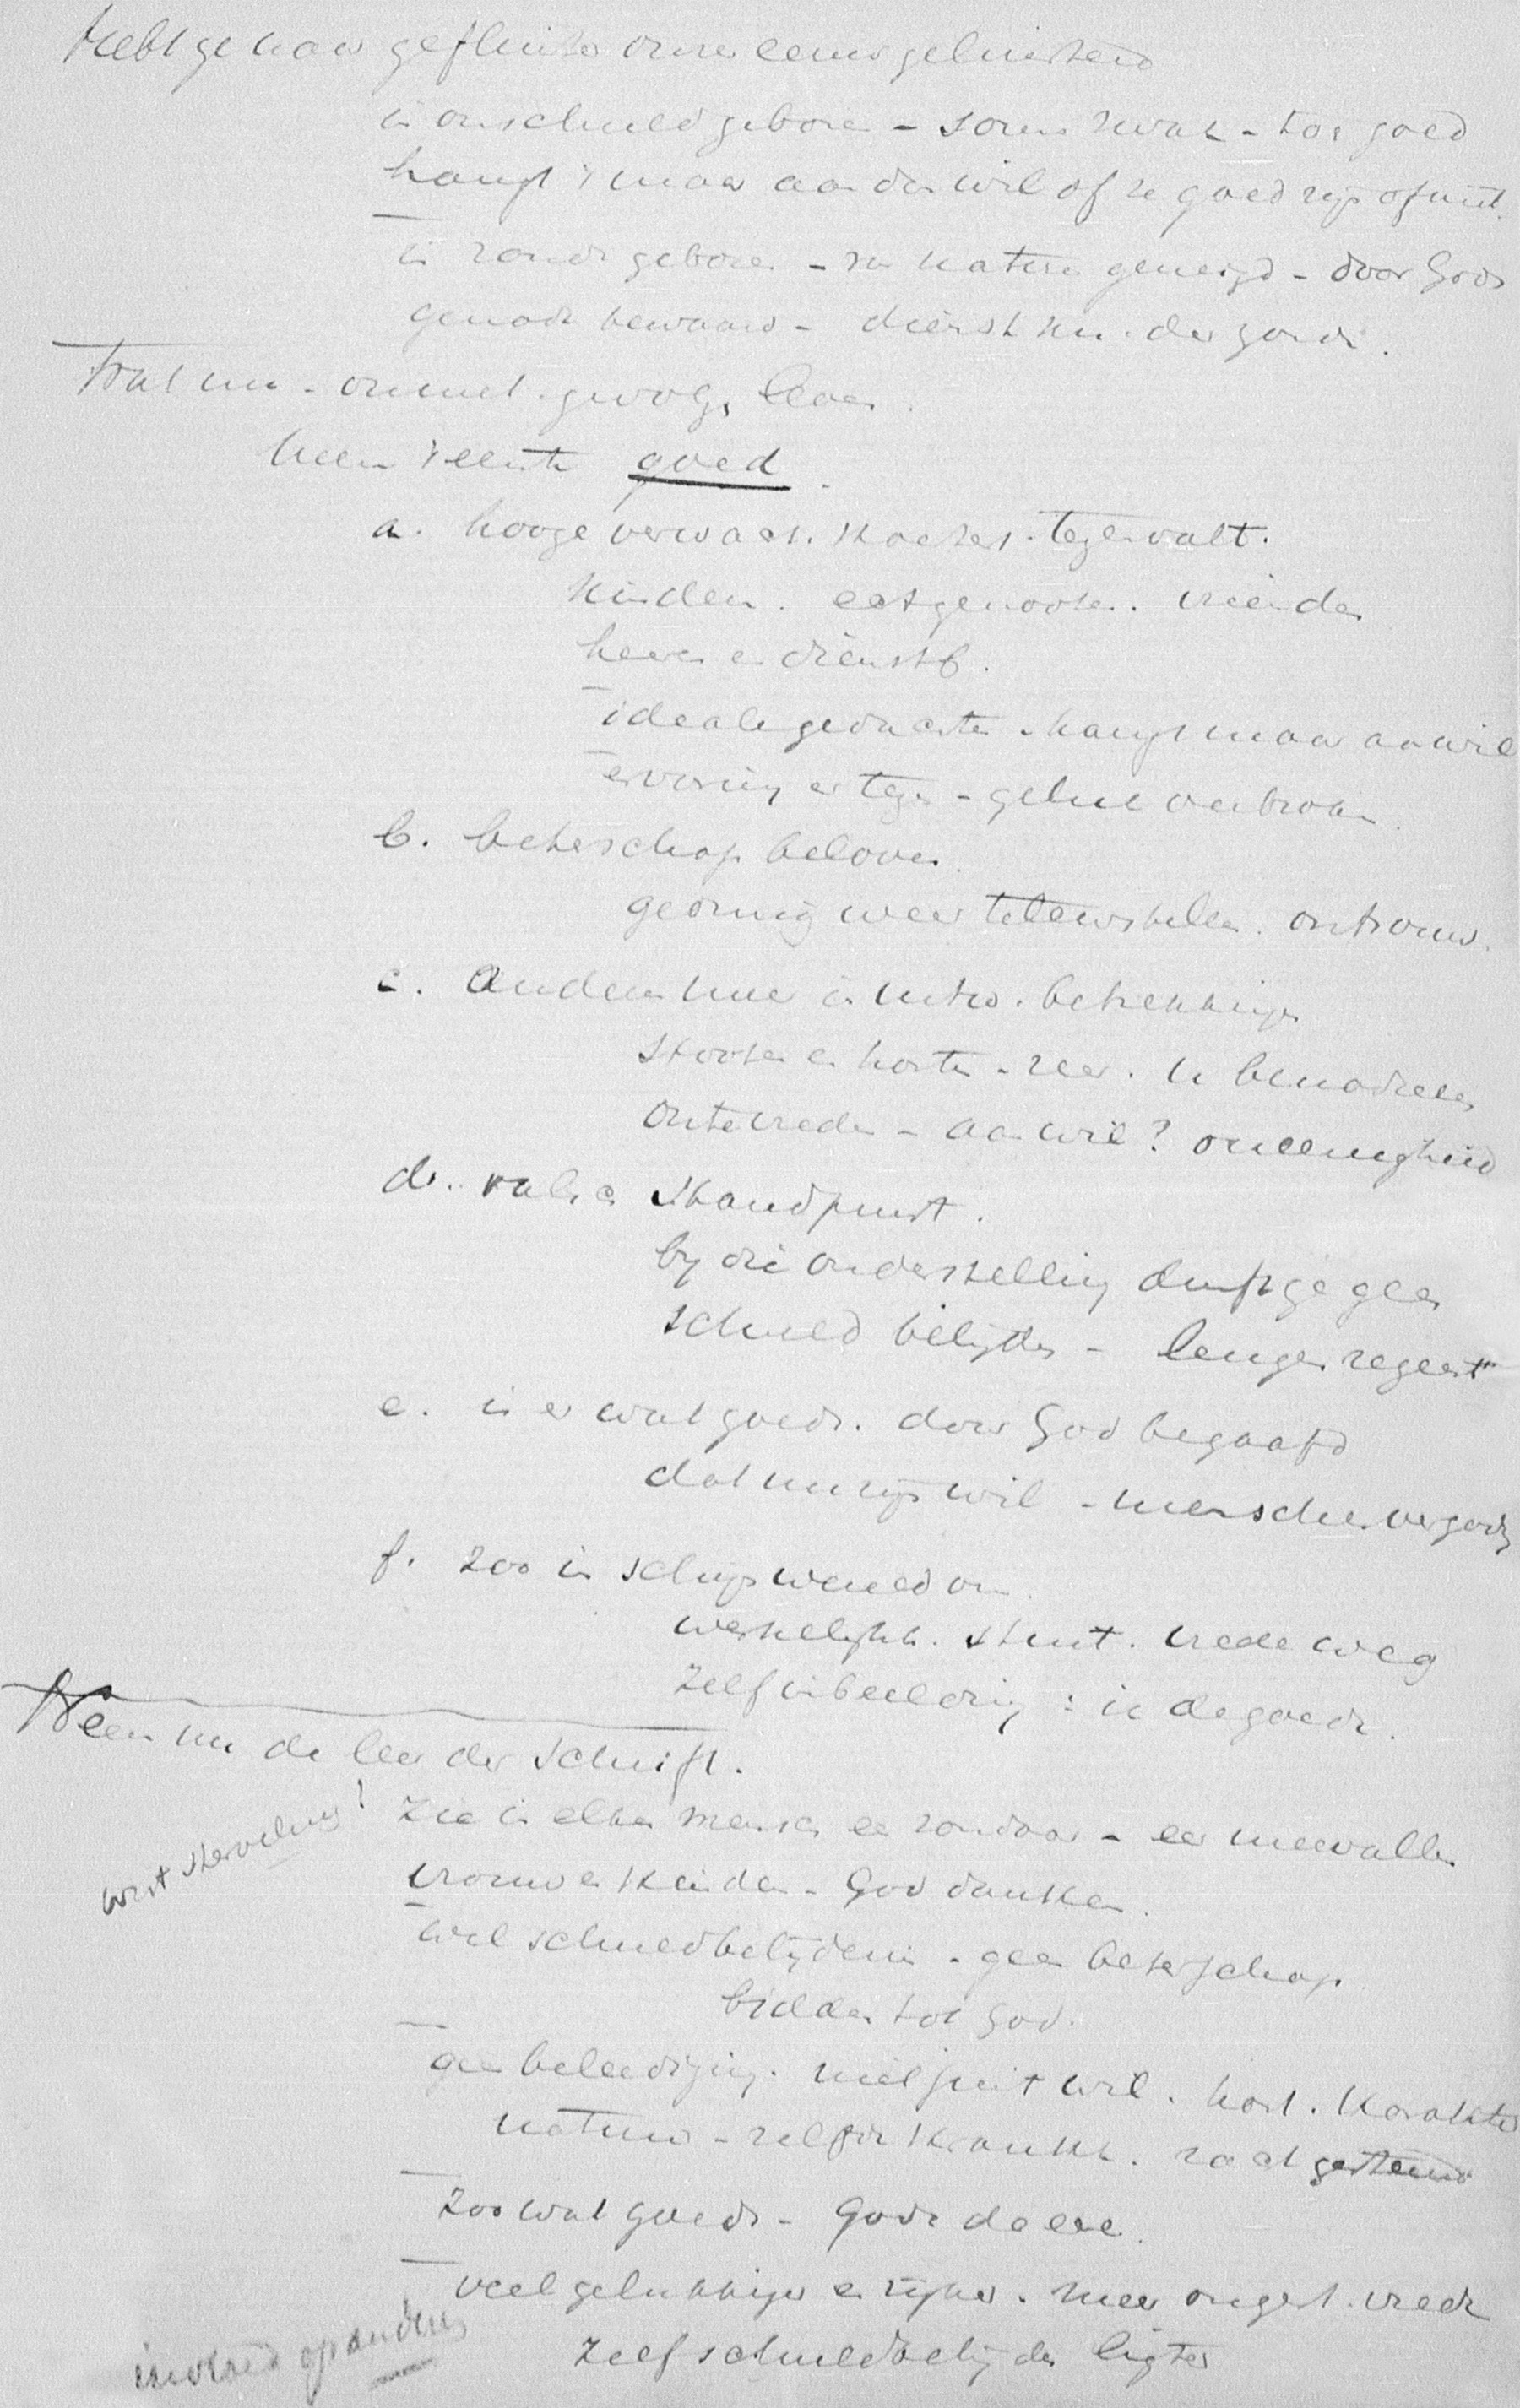 Hebt ge naar gefluister onzer eeuw geluisterd
in onschuld geboren - soms zwak - tot goed
hangt 't maar aan den wil of ze goed zijn of niet.
in zonde geboren - van nature geneigd - door Gods
genade bewaard - dienstkn. der zonde.
Wat nu - onmid. gevolg, leven.
Neem 't eerste goed.
a. hooge verwacht. koestert. tegenvalt.
kinderen. echtgenooten. vrienden
heeren en dienstb.
ideale gedachte - hangt maar aan wil
ervaring er tegen - geluk verbroken.
b. beterschap beloven.
gedurig weer teleurstellen. ontrouw.
c. anderen in betrekkingen
stooten en horten - zeer. te benadeelen
ontevreden - aan wil? oneenigheid
d. valsch standpunt.
by die onderstelling durft ge geen
schuld belijden - leugen regeert
e. is er wat goeds. door God begaafd
dat nu zijn wil - menschen vergoden
f. zoo in schijnwereld om.
werkelijkh. stuit. vrede weg
zelfinbeelding : is de goede.
Neem nu de leer der Schrift.
Zie in elken mensch een zondaar - een meevallen
vrouw en kinderen - God danken.
wel schuldbelijdenis - geen beterschap
bidden tot God.
geen beleediging. niet juist wil. hart. karakter
natuur - zelf zacht gestemd
Zoo wat goeds - Gode de eere.
veel gelukkiger en rijker. meer ongest. vrede
zelf schuldbelijden ligter
invloed op anderen